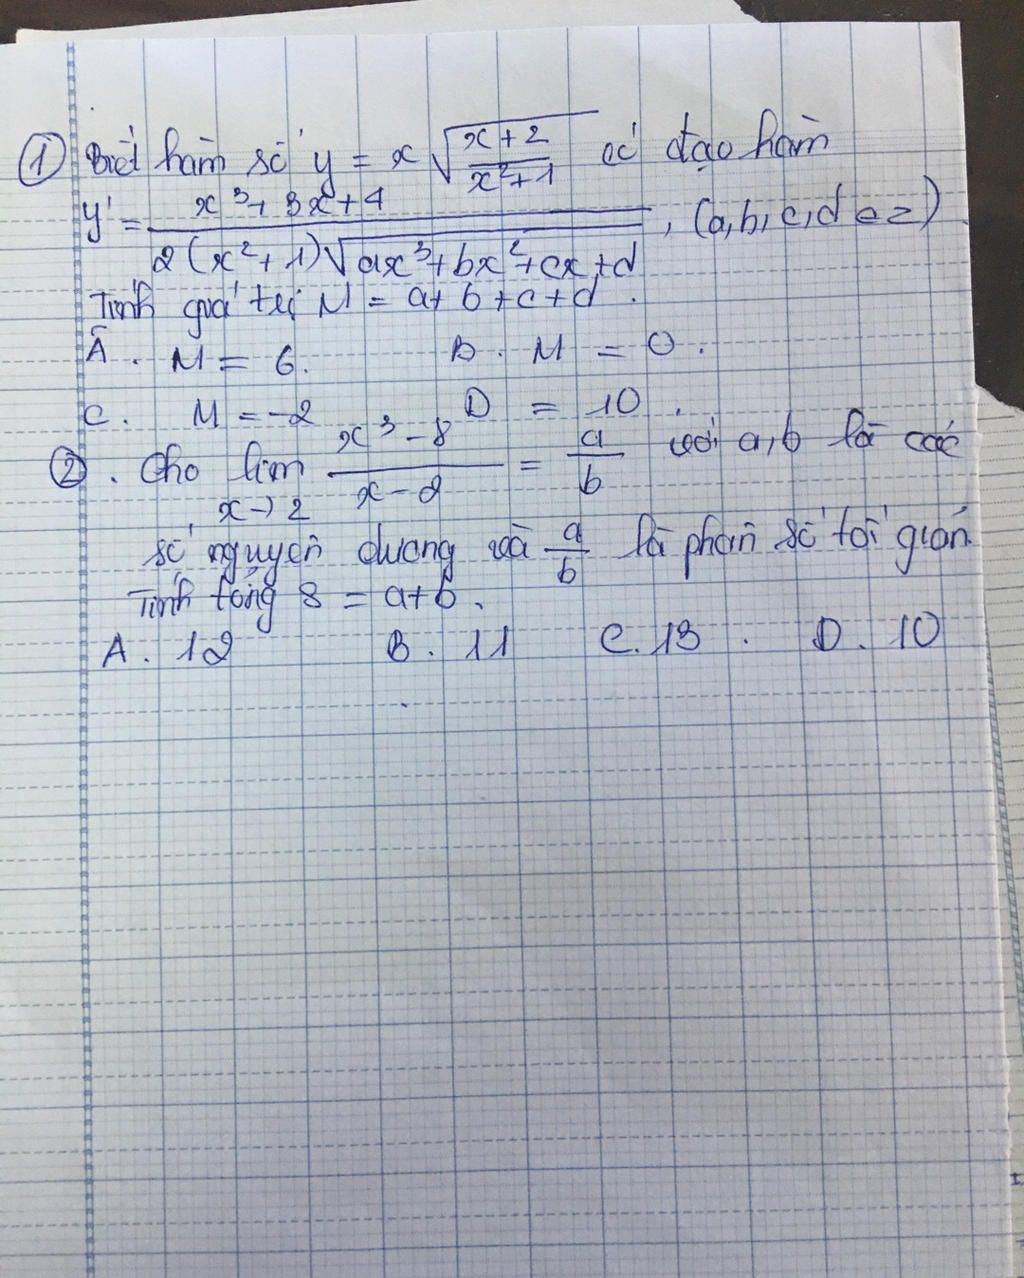 ① Biết hàm số y = x √((x+2)/(x²+1)) có đạo hàm
y' = (x³+3x+4)/(2(x²+1)√(ax³+bx²+cx+d)), (a,b,c,d ∈ Z).
Tính giá trị M = a+b+c+d.
A. M = 6. B. M = 0.
C. M = -2 D = 10.
②. Cho lim x→2 (x³-8)/(x-2) = a/b với a,b là các
số nguyên dương và a/b là phân số tối giản
Tính tổng S = a+b.
A. 12 B. 11 C. 13. D. 10